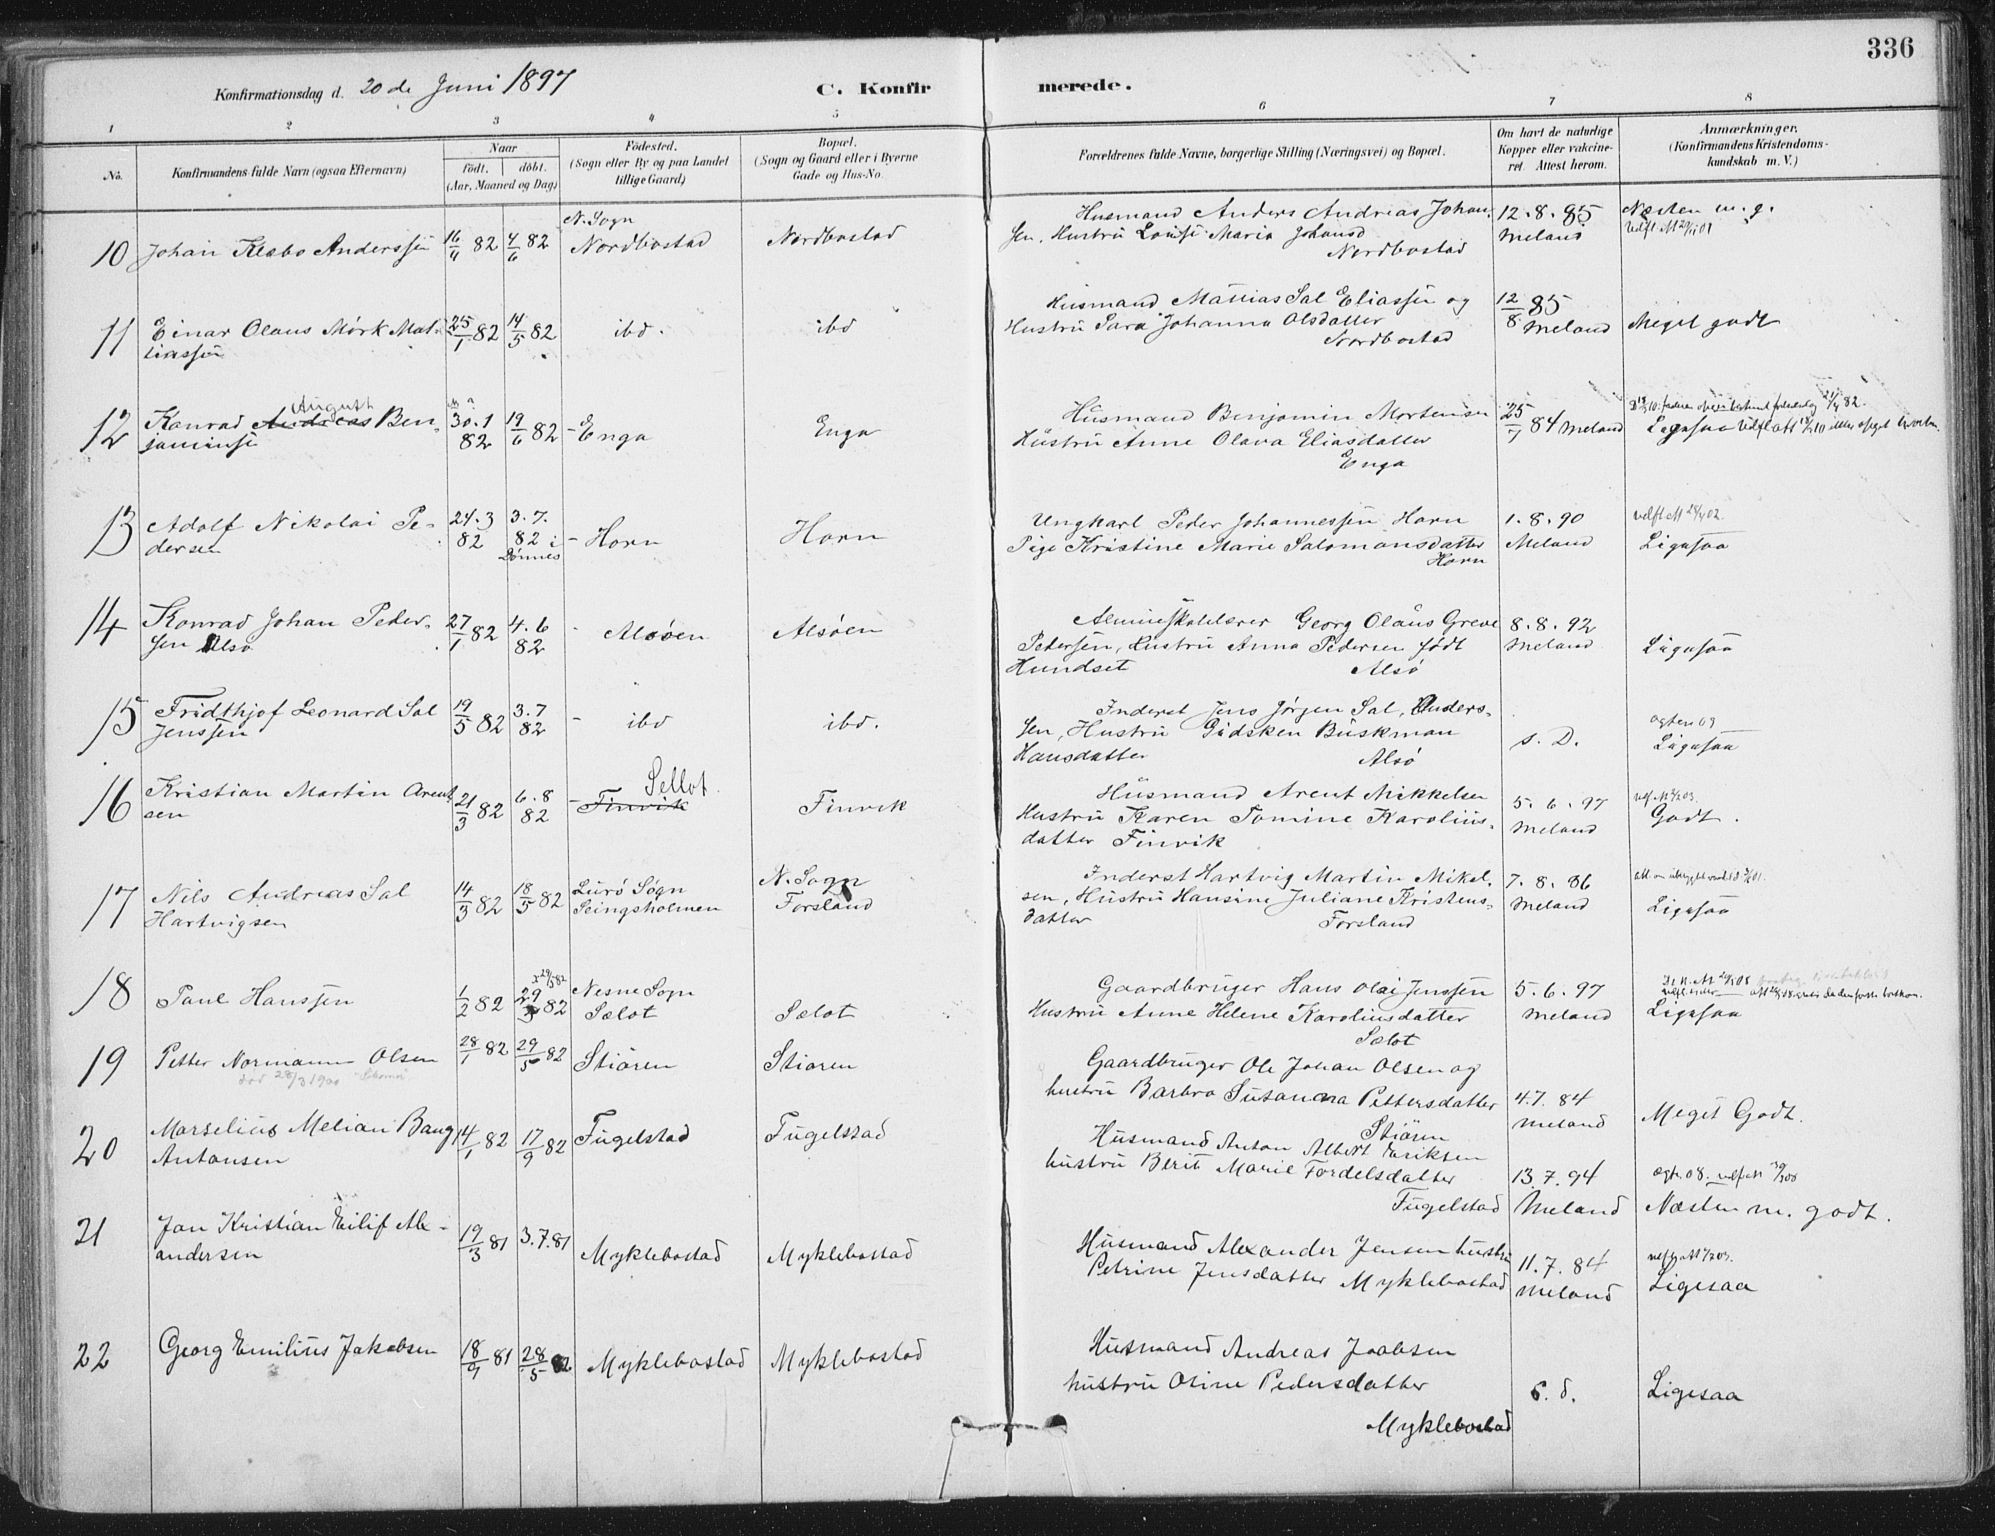 336
Konfirmationsdag d. 20de Juni 1897
C. Konfirmerede.
1 2 3 4 5 6 7 8
No.
Konfirmandens fulde Navn (ogsaa Efternavn)
Naar
födt. döbt.
(Aar, Maaned og Dag)
Födested.
(Sogn eller By og paa Landet
tillige Gaard)
Bopæl.
(Sogn og Gaard eller i Byerne
Gade og Hus-No.
Forældrenes fulde Navne, borgerlige Stilling (Næringsvei) og Bopæl.
Om havt de naturlige
Kopper eller vakcine-
ret. Attest herom.
Anmærkninger.
(Konfirmandens Kristendoms-
kundskab m. V.)
N. Sogn
10 Johan Klæbo Anderssen 16/4 82 4/6 82 Nordbostad Nordbostad
Husmand Anders Andreas Johan-
sen, Hustru Lovise Maria Johansd
Nordbostad
12.8.85
Meland
Næsten m. g.
11 Einar Olaus Mörk Mat-
tiassen 25/1 82 14/5 82 ibd. ibd
Husmand Mattias Sal Eliassen og
Hustru Sara Johanna Olsdatter
Nordbostad
12/8 85
Meland
Meget godt
August
12 Konrad Andreas Ben-
jaminse 30.1
82 19/6 82 - Enga Enga
Husmand Benjamin Mortensen
Hustru Anne Olava Eliasdatter
Enga
25/7 84 Meland
Ligesaa
13 Adolf Nikolai Pe-
dersen 24.3
82 3.7.
82 i
Dönnes - Horn Horn
Ungkarl Peder Johannessen Horn
Pige Kristine Marie Salomonsdatter
Horn
1.8.90
Meland
Ligesaa
14 Konrad Johan Peder-
sen Alsö 27/1 82 4.6
82 - Alsöen Alsöen
Almueskolelærer Georg Olaus Greve
Pedersen, Hustru Anna Pedersen födt
Hundset Alsö
8.8.92
Meland
Ligesaa
15 Fridthjof Leonard Sal
Jenssen 19/5 82 3.7
82 - ibd ibd.
Inderst Jens Jörgen Sal, Anders-
sen, Hustru Gidsken Buskman
Hansdatter Alsö
s. D.
Ligesaa
16 Kristian Martin Arent
sen 21/3 82 6.8
82 - Finvik Sellot. Finvik
Husmand Arent Mikkelsen
Hustru Karen Tomine Karolius-
datter Finvik
5.6.97
Meland
Godt.
17 Nils Andreas Sal
Hartvigsen 14/3 82 18/5 82 Lurö Sogn
Seingsholmen N. Sogn
Forsland
Inderst Hartvig Martin Mikel-
sen, Hustru Hansine Juliane Kristens-
datter Forsland
7.8.86
Meland
Ligesaa
18 Paul Hanssen 1/2 82 Nesne Sogn
Sælot Sælot
Gaardbruger Hans Olai Jenssen
Hustru Anne Helene Karoliusdatter
Sælot
5.6.97
Meland
Ligesaa
19 Petter Normann Olsen 28/1 82 29/5 82 Stiören Stiören
Gaardbruger Ole Johan Olsen og
hustru Barbro Susanna Pettersdatter
Stiören
4.7.84
Meland
Meget Godt.
20 Marselius Melian Baug
Antonsen 14/1 82 17/9 82 Fugelstad Fugelstad
Husmand Anton Albert Eriksen
hustru Berit Marie Fordelsdatter
Fugelstad
13.7.94
Meland
Næsten m. godt.
21 Jan Kristian Eilif Alx-
andersen 19/3 81 3.7.81 Myklebostad Myklebostad
Husmand Alexander Jensen hustru
Petrine Jensdatter Myklebostad
11.7.84
Meland
Ligesaa
22 Georg Emilius Jakobsen 18/9 81 28/5 82 Myklebostad Myklebostad
Husmand Andreas Jaobsen
hustru Oline Pedersdatter
Myklebostad
s. d.
Ligesaa